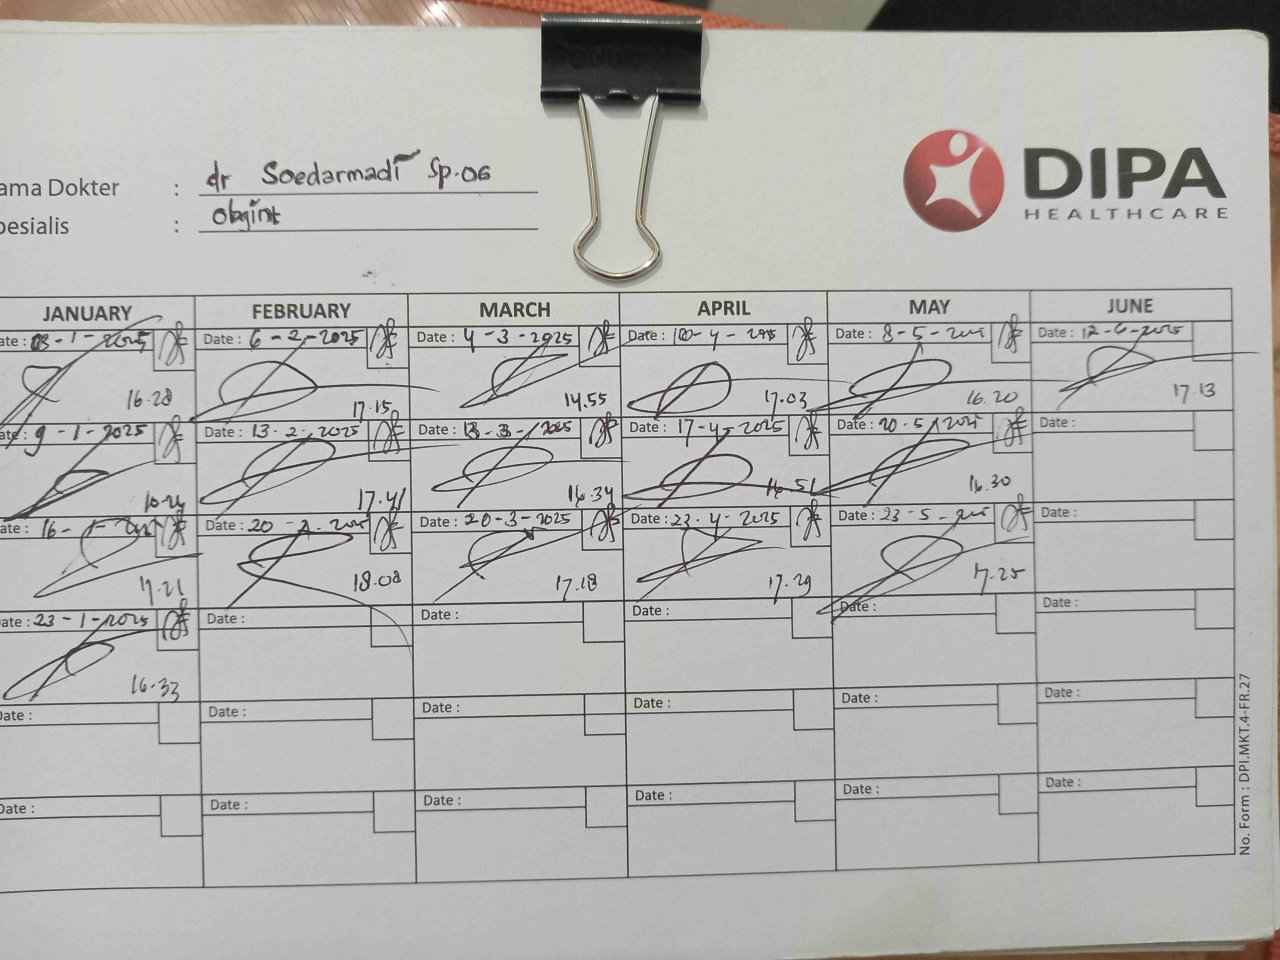 DIPA
HEALTHCARE
ama Dokter : dr Soedarmadi Sp.OG
pesialis : Obgint
JANUARY FEBRUARY MARCH APRIL MAY JUNE
ate : 03-1-2025 Date : 6-2-2025 Date : 4-3-2025 Date : 10-4-2025 Date : 8-5-2025 Date : 12-6-2025
16.28 17.15 14.55 17.03 16.20 17.13
ate : 9-1-2025 Date : 13-2-2025 Date : 13-3-2025 Date : 17-4-2025 Date : 20-5-2025 Date :
17.41 16.34 16.51 16.30
ate : 16-1- Date : 20-2-2025 Date : 20-3-2025 Date : 23-4-2025 Date : 23-5-2025 Date :
17.21 18.08 17.18 17.29 17.25
ate : 23-1-2025 Date : Date : Date : Date : Date :
16.33
Date : Date : Date : Date : Date : Date :
Date : Date : Date : Date : Date : Date :
No. Form : DPI.MKT.4-FR.27